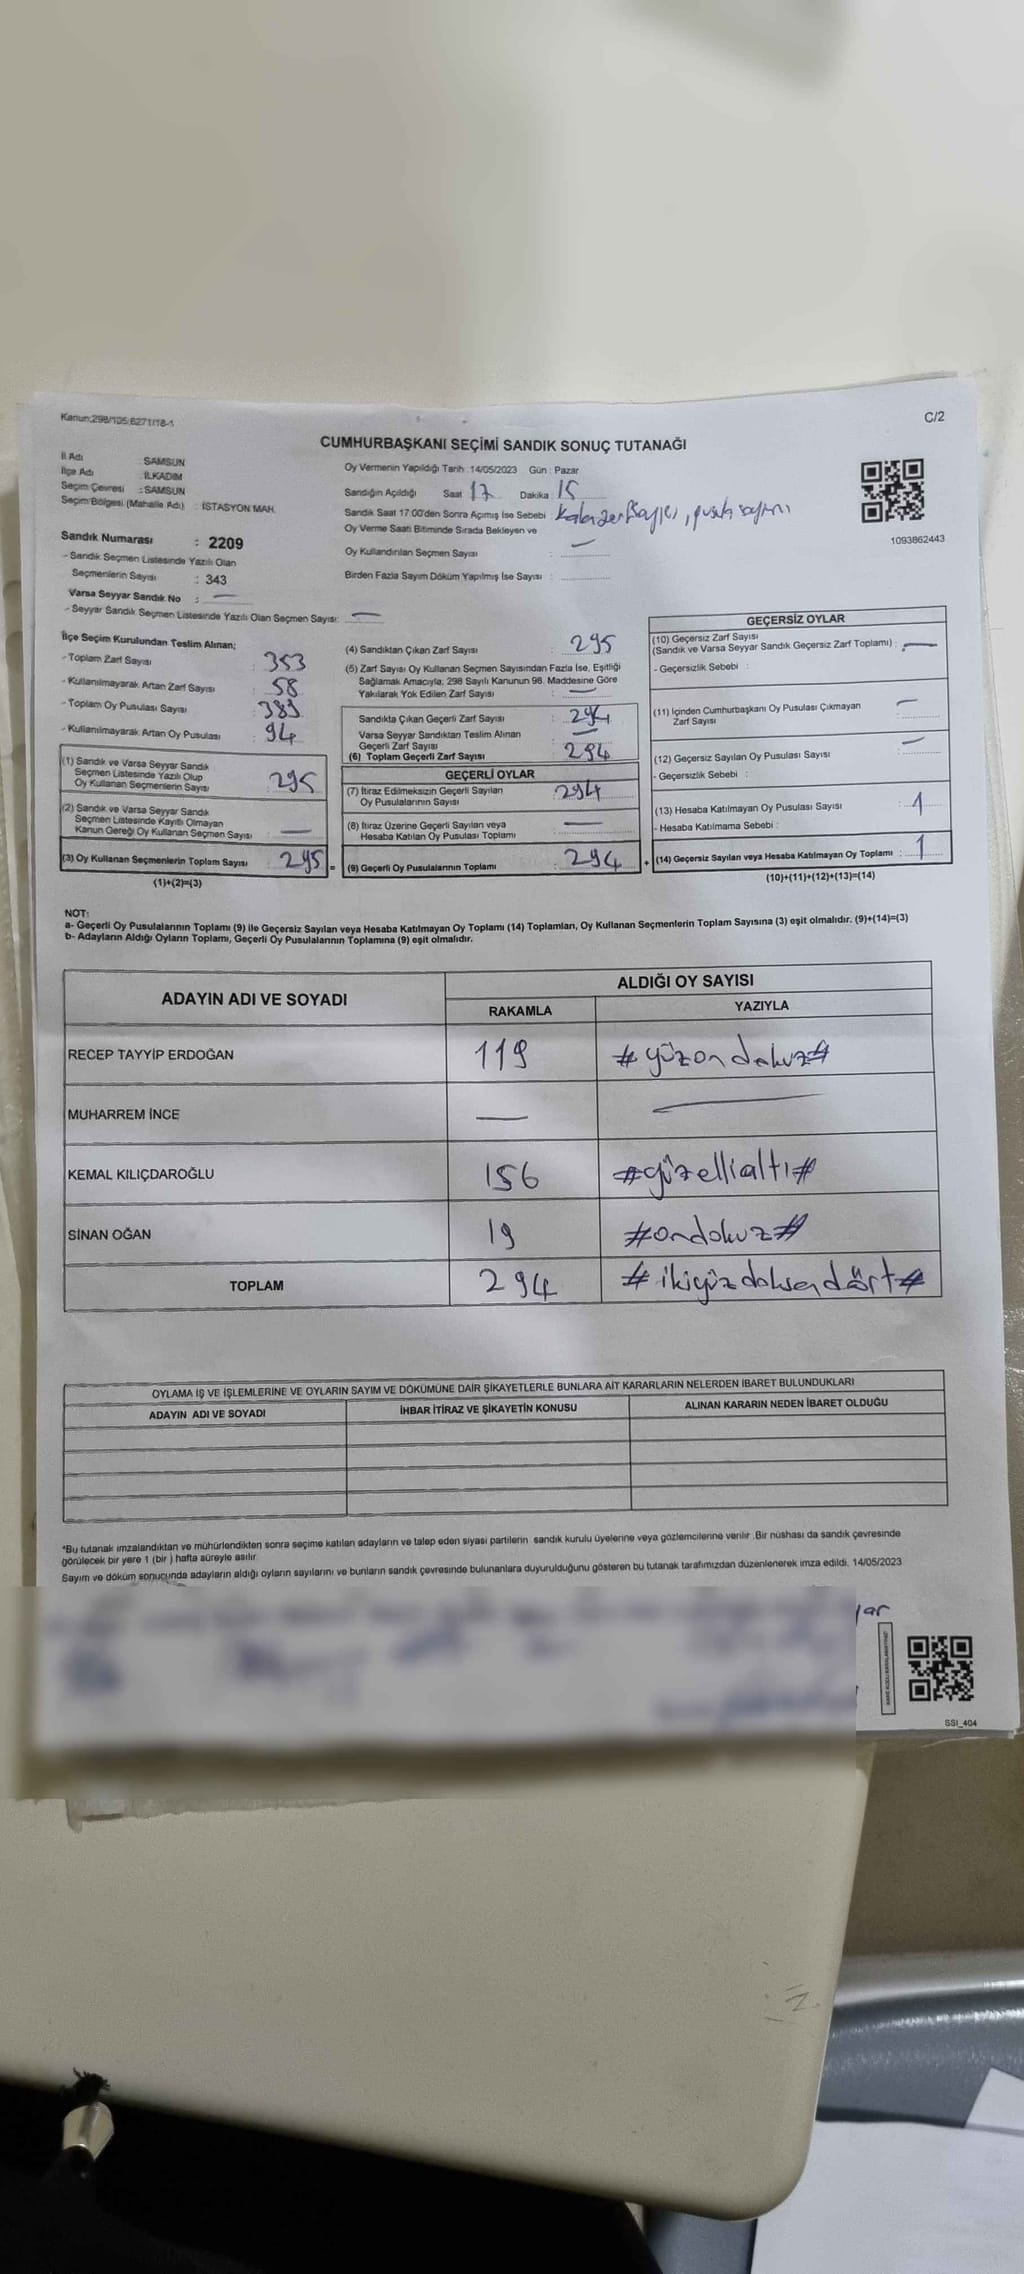 Kanun:298/105;6271/18-1
C/2
CUMHURBAŞKANI SEÇİMİ SANDIK SONUÇ TUTANAĞI
İl Adı : SAMSUN
İlçe Adı : İLKADIM
Seçim Çevresi : SAMSUN
Seçim Bölgesi (Mahalle Adı) : İSTASYON MAH.
Sandık Numarası : 2209
- Sandık Seçmen Listesinde Yazılı Olan
Seçmenlerin Sayısı : 343
Varsa Seyyar Sandık No : —
- Seyyar Sandık Seçmen Listesinde Yazılı Olan Seçmen Sayısı: —
Oy Vermenin Yapıldığı Tarih :14/05/2023 Gün : Pazar
Sandığın Açıldığı Saat 17 Dakika 15
Sandık Saat 17.00'den Sonra Açılmış İse Sebebi : pusula sayımı
Oy Verme Saati Bitiminde Sırada Bekleyen ve
Oy Kullandırılan Seçmen Sayısı : —
Birden Fazla Sayım Döküm Yapılmış İse Sayısı :
1093862443
İlçe Seçim Kurulundan Teslim Alınan;
- Toplam Zarf Sayısı : 353
- Kullanılmayarak Artan Zarf Sayısı : 58
- Toplam Oy Pusulası Sayısı : 389
- Kullanılmayarak Artan Oy Pusulası : 94
(1) Sandık ve Varsa Seyyar Sandık
Seçmen Listesinde Yazılı Olup
Oy Kullanan Seçmenlerin Sayısı : 295
(2) Sandık ve Varsa Seyyar Sandık
Seçmen Listesinde Kayıtlı Olmayan
Kanun Gereği Oy Kullanan Seçmen Sayısı : —
(3) Oy Kullanan Seçmenlerin Toplam Sayısı : 295 =
(1)+(2)=(3)
(4) Sandıktan Çıkan Zarf Sayısı : 295
(5) Zarf Sayısı Oy Kullanan Seçmen Sayısından Fazla İse, Eşitliği
Sağlamak Amacıyla; 298 Sayılı Kanunun 98. Maddesine Göre
Yakılarak Yok Edilen Zarf Sayısı : —
Sandıkta Çıkan Geçerli Zarf Sayısı : 294
Varsa Seyyar Sandıktan Teslim Alınan
Geçerli Zarf Sayısı : —
(6) Toplam Geçerli Zarf Sayısı : 294
GEÇERLİ OYLAR
(7) İtiraz Edilmeksizin Geçerli Sayılan
Oy Pusulalarının Sayısı : 294
(8) İtiraz Üzerine Geçerli Sayılan veya
Hesaba Katılan Oy Pusulası Toplamı : —
(9) Geçerli Oy Pusulalarının Toplamı : 294 +
GEÇERSİZ OYLAR
(10) Geçersiz Zarf Sayısı
(Sandık ve Varsa Seyyar Sandık Geçersiz Zarf Toplamı) : —
- Geçersizlik Sebebi :
(11) İçinden Cumhurbaşkanı Oy Pusulası Çıkmayan
Zarf Sayısı : —
(12) Geçersiz Sayılan Oy Pusulası Sayısı : —
- Geçersizlik Sebebi :
(13) Hesaba Katılmayan Oy Pusulası Sayısı : 1
- Hesaba Katılmama Sebebi :
(14) Geçersiz Sayılan veya Hesaba Katılmayan Oy Toplamı : 1
(10)+(11)+(12)+(13)=(14)
NOT:
a- Geçerli Oy Pusulalarının Toplamı (9) ile Geçersiz Sayılan veya Hesaba Katılmayan Oy Toplamı (14) Toplamları, Oy Kullanan Seçmenlerin Toplam Sayısına (3) eşit olmalıdır. (9)+(14)=(3)
b- Adayların Aldığı Oyların Toplamı, Geçerli Oy Pusulalarının Toplamına (9) eşit olmalıdır.
ADAYIN ADI VE SOYADI
ALDIĞI OY SAYISI
RAKAMLA YAZIYLA
RECEP TAYYİP ERDOĞAN 119 #yüzondokuz#
MUHARREM İNCE — —
KEMAL KILIÇDAROĞLU 156 #yüzellialtı#
SİNAN OĞAN 19 #ondokuz#
TOPLAM 294 #ikiyüzdoksandört#
OYLAMA İŞ VE İŞLEMLERİNE VE OYLARIN SAYIM VE DÖKÜMÜNE DAİR ŞİKAYETLERLE BUNLARA AİT KARARLARIN NELERDEN İBARET BULUNDUKLARI
ADAYIN ADI VE SOYADI İHBAR İTİRAZ VE ŞİKAYETİN KONUSU ALINAN KARARIN NEDEN İBARET OLDUĞU
*Bu tutanak imzalandıktan ve mühürlendikten sonra seçime katılan adayların ve talep eden siyasi partilerin sandık kurulu üyelerine veya gözlemcilerine verilir .Bir nüshası da sandık çevresinde
görülecek bir yere 1 (bir ) hafta süreyle asılır.
Sayım ve döküm sonucunda adayların aldığı oyların sayılarını ve bunların sandık çevresinde bulunanlara duyurulduğunu gösteren bu tutanak tarafımızdan düzenlenerek imza edildi. 14/05/2023
SSI_404